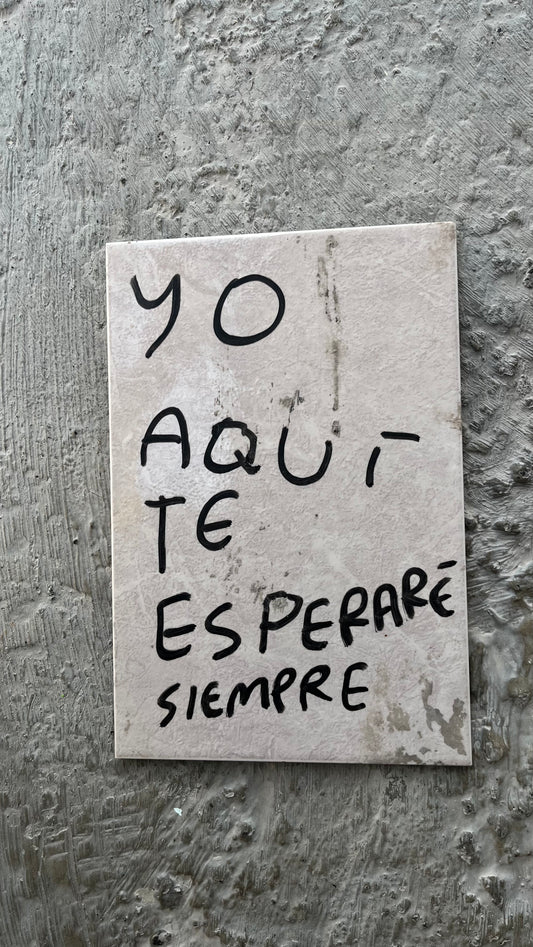 YO
AQUÍ
TE
ESPERARÉ
SIEMPRE